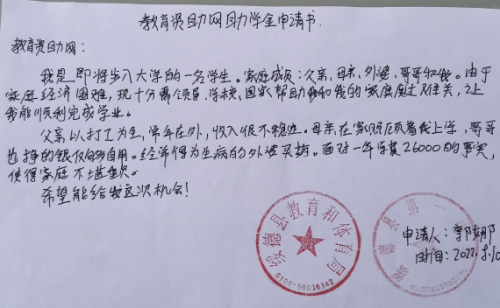 教育资助网助学金申请书
教育资助网:
我是即将步入大学的一名学生。家庭成员:父亲、母亲、外婆、哥哥和我。由于
家庭经济困难,现十分需领导、学校、国家帮助我和我的家庭度过难关,让
我能顺利完成学业。
父亲以打工为生,常年在外,收入很不稳定。母亲在家照顾着我上学,哥哥
也挣的钱仅够自用。经常得为生病的外婆买药。面对一年学费26000的事实,
使得家庭不堪重负。
希望能给我这次机会!
绥德县教育和体育局
申请人:
时间:2022.